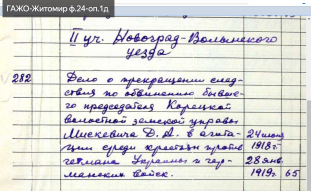 ГАЖО-Житомир ф.24-оп.1д
II уч. Новоград-Волынского
уезда
282 Дело о прекращении след-
ствия по обвинению бывше-
го председателя Корецкой
волостной земской управы
Мискевича Д. А. в агита- 24 июня
ции среди крестьян против 1918 г.
гетмана Украины и гер- 28 янв.
манских войск. 1919 г. 65